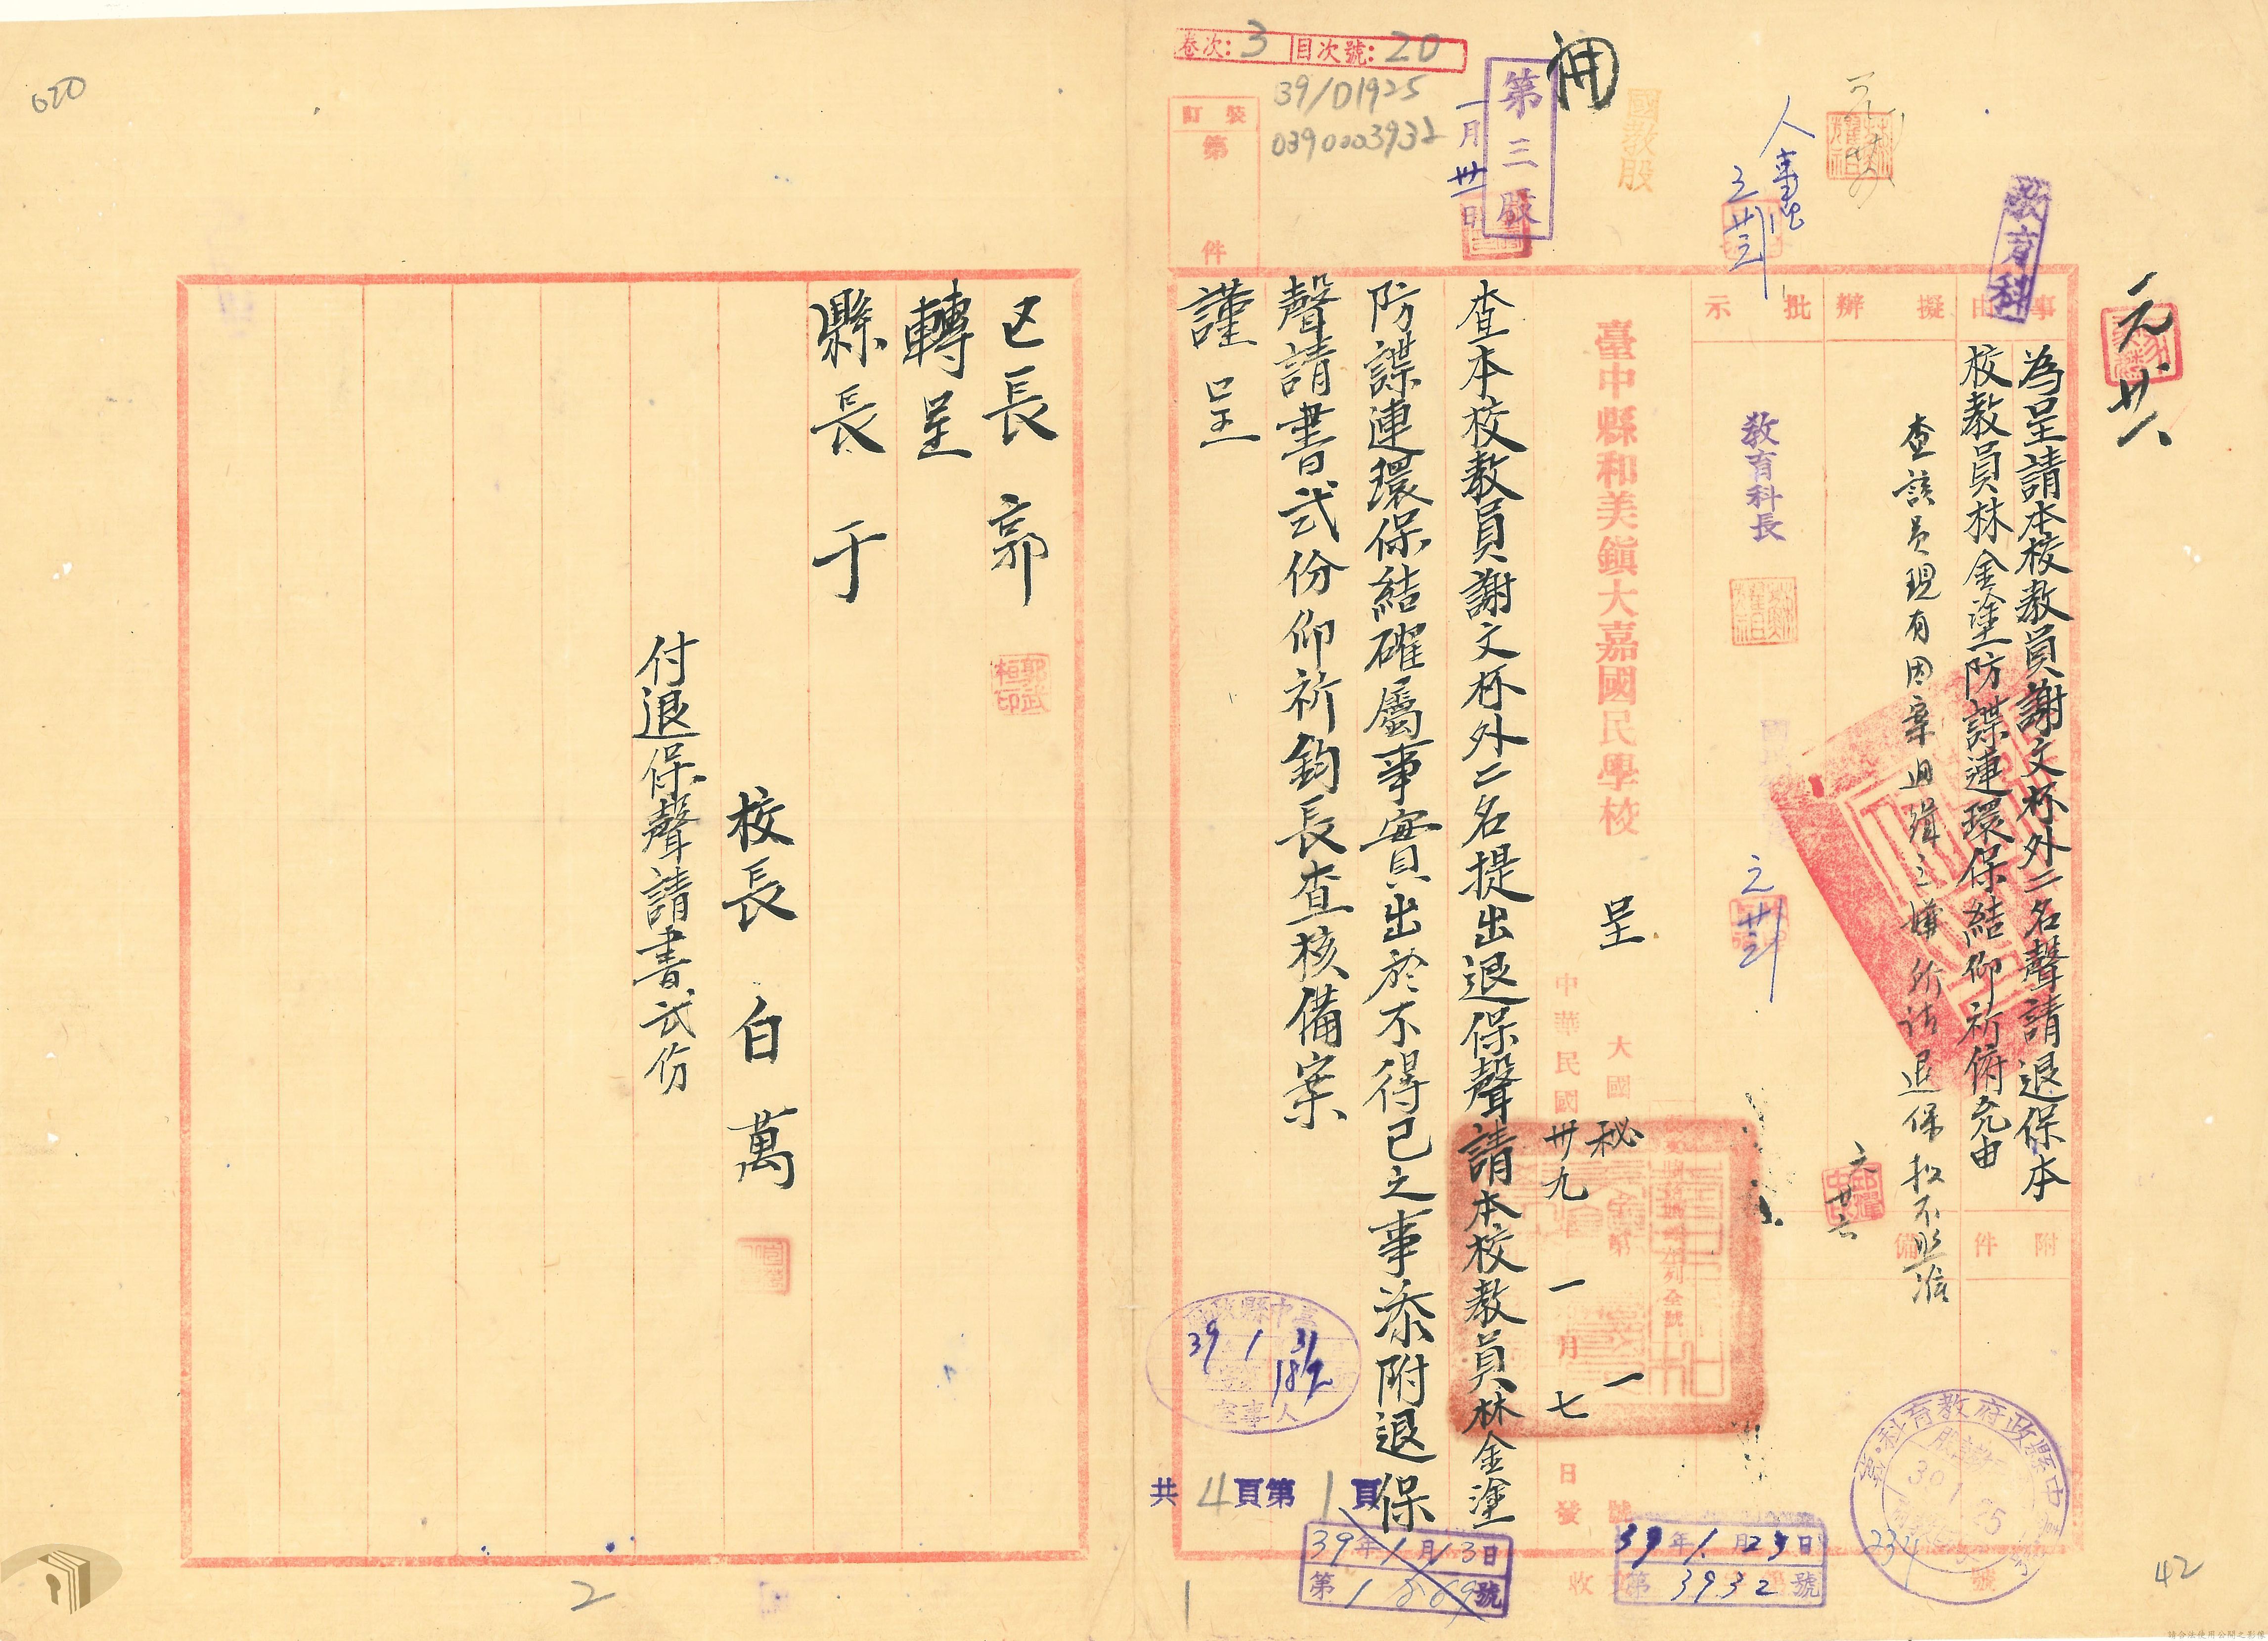 卷次:3 目次號:20
39/D1925
0390003932
裝訂
第
件
第三股
一月卅一日
國教股
人事
教育科
元廿八
事由
擬辦
批示
為呈請本校教員謝文杯外二名聲請退保本
校教員林金塗防諜連環保結仰祈俯允由
附件
備
查該員現有因案通緝之嫌所請退保擬不照准
教育科長
臺中縣和美鎮大嘉國民學校 呈
大國秘 第 一 號
中華民國卅九年一月七日發
查本校教員謝文杯外二名提出退保聲請本校教員林金塗
防諜連環保結確屬事實出於不得已之事添附退保
聲請書弍份仰祈鈞長查核備案
謹呈
區長 郭
郭武桓印
轉呈
縣長 于
校長 白萬
付退保聲請書弍份
臺中縣政府
39 1 31
182
人事室
共4頁第1頁
39年1月13日
第1869號
收文
39年1月25日
第3932號
臺中縣政府教育科
39.1.25
234
號
020
42
1
2
請合法使用公開之影像